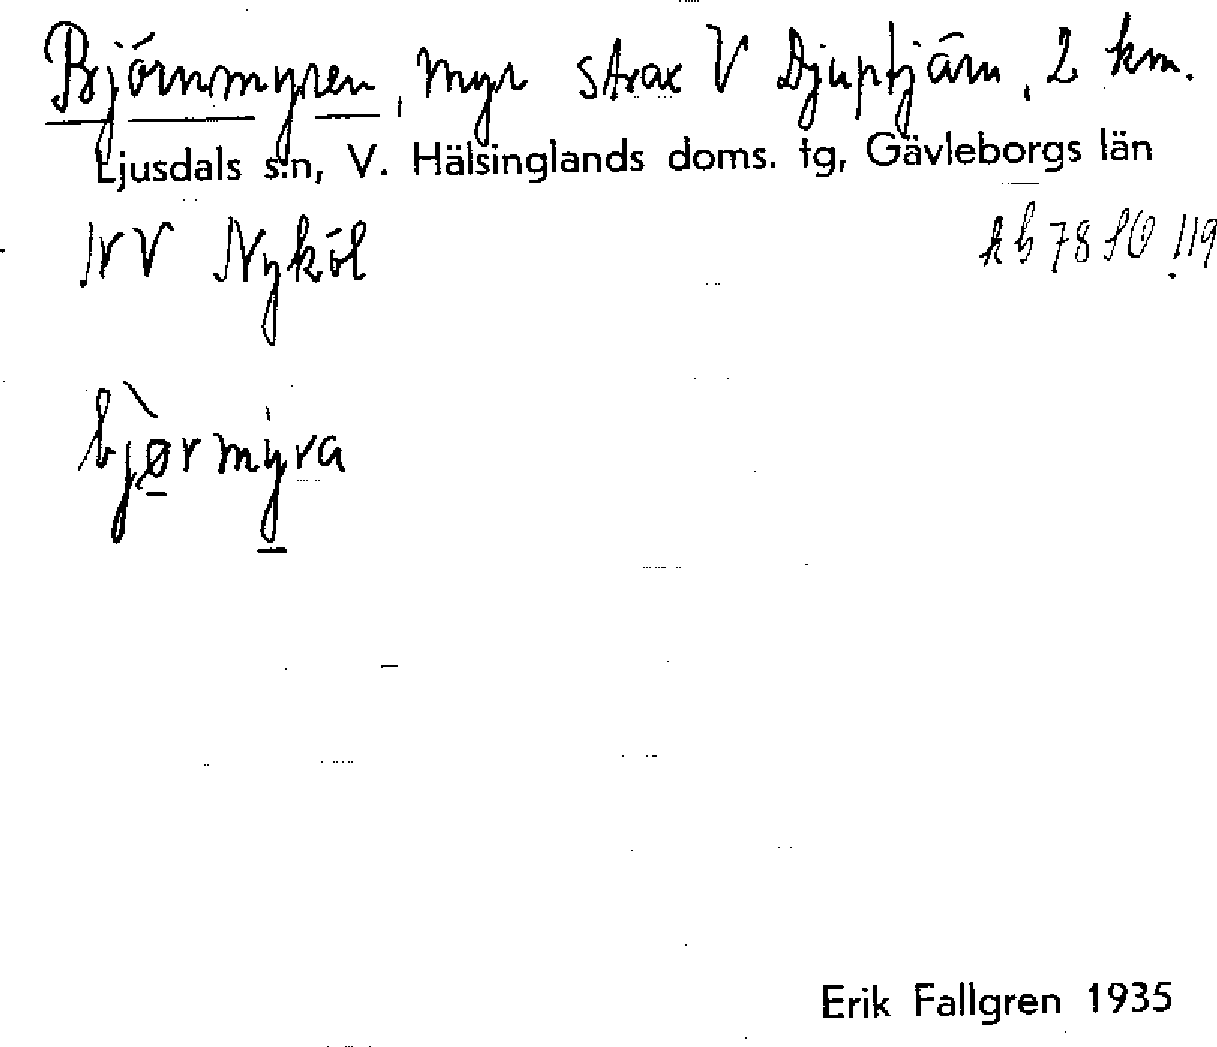 Björnmyren, myr strax V Djuptjärn, 2 km.
Ljusdals s:n, V. Hälsinglands doms. tg, Gävleborgs län
NV Nyköl
kb 78 SO 119
bjørmyra
Erik Fallgren 1935